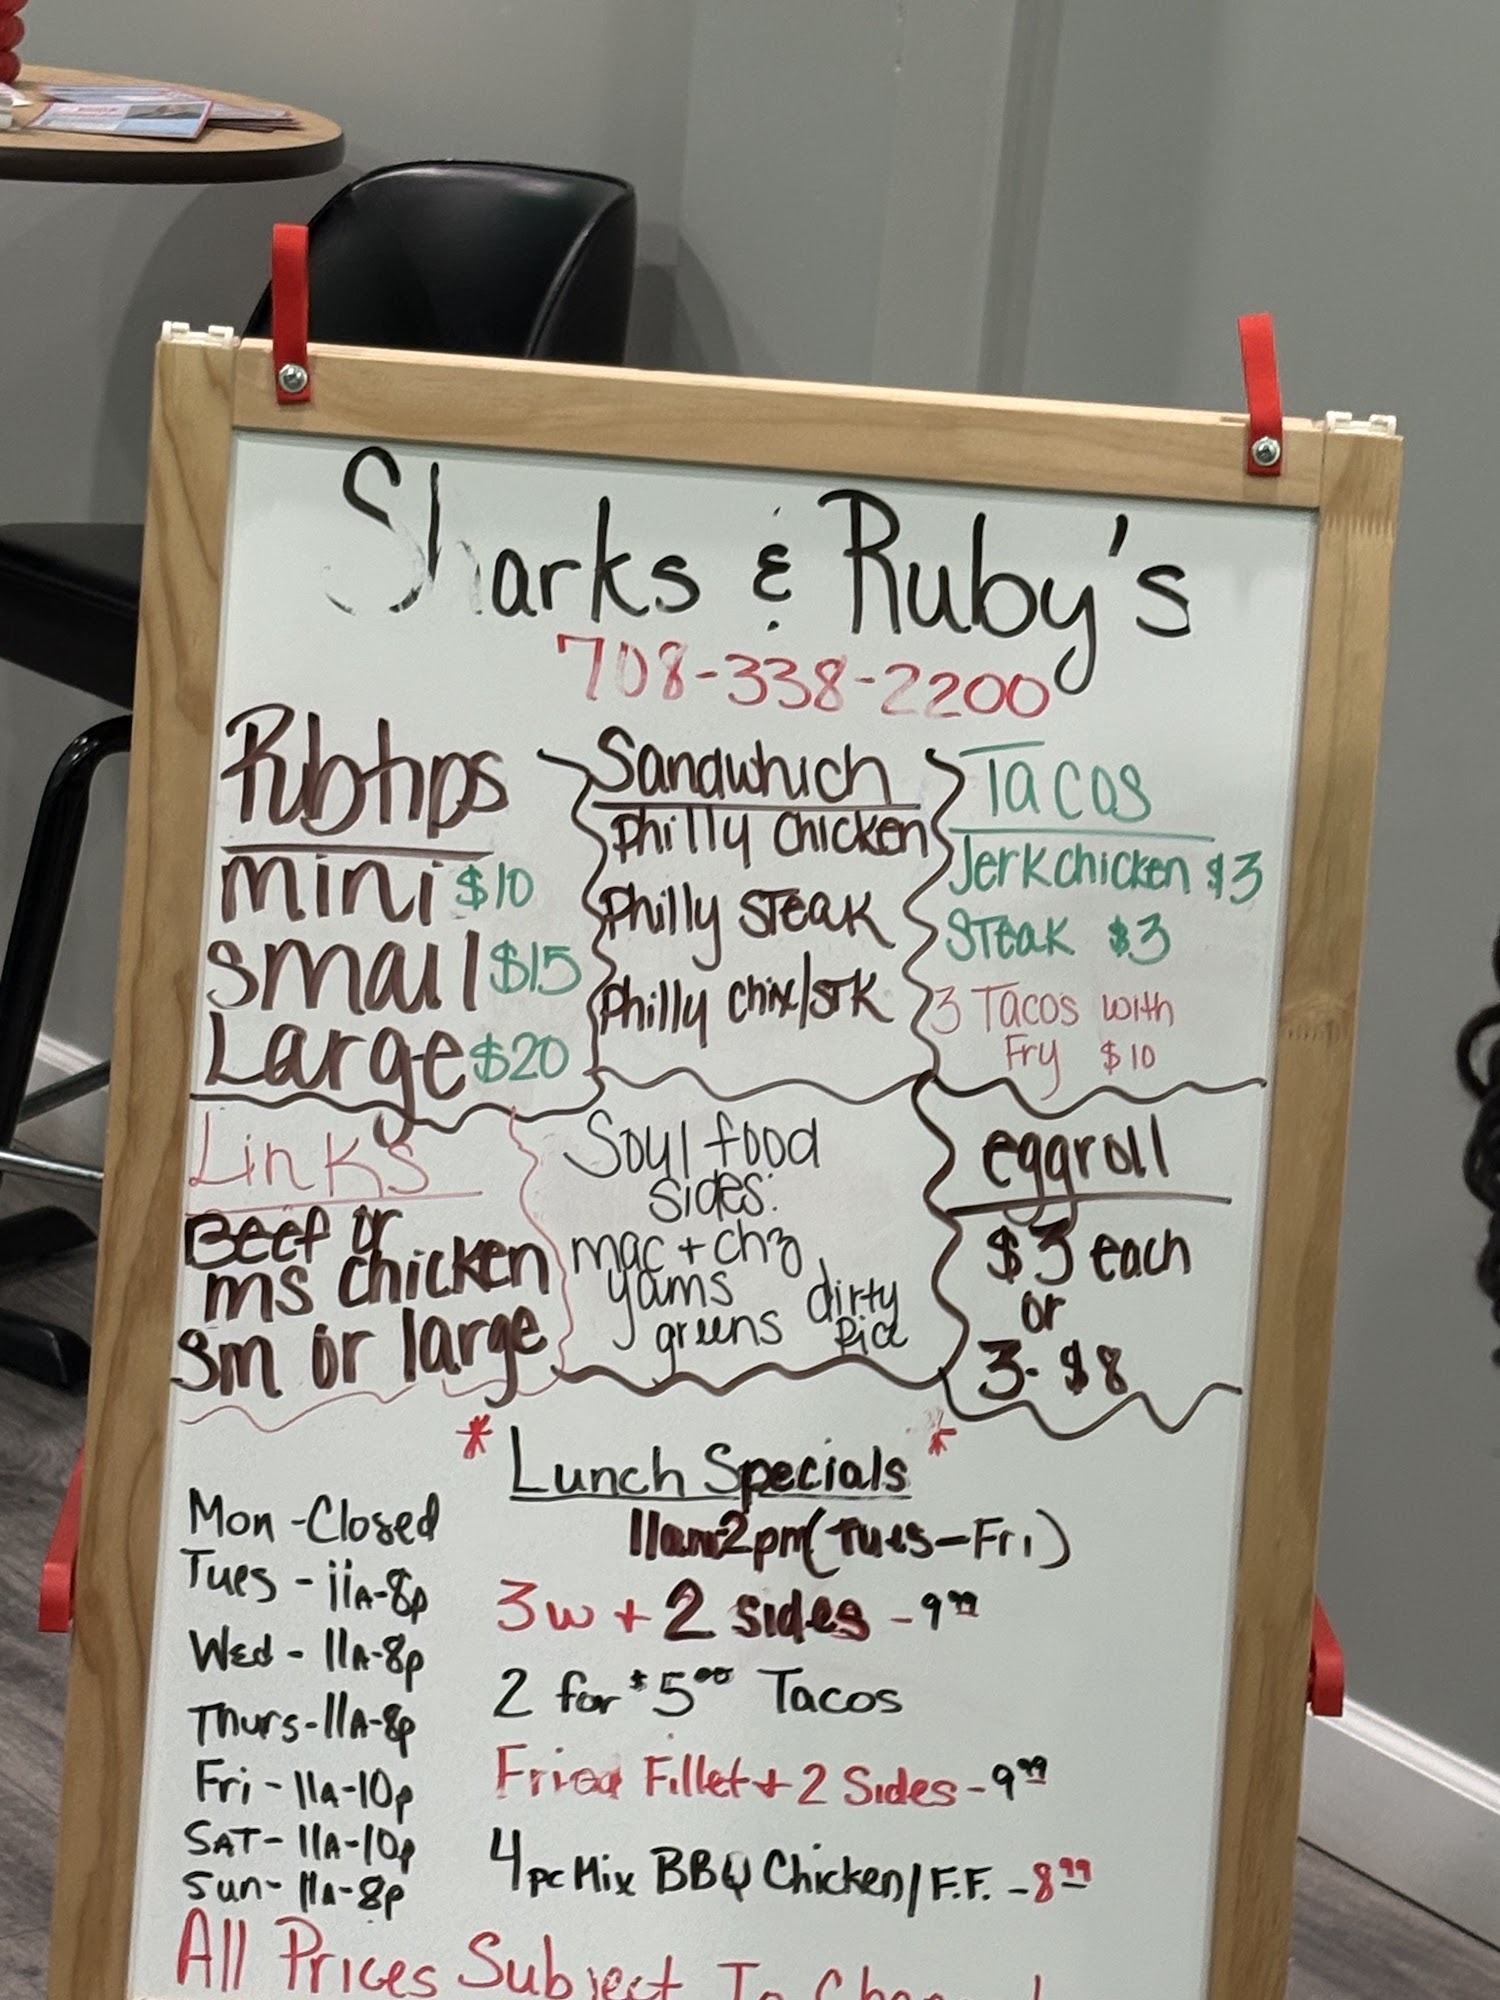 Sharks & Ruby's
708-338-2200
Ribtips
mini $10
small $15
Large $20
Sandwhich
Philly chicken
Philly STeaK
Philly chix/STK
Tacos
Jerk chicken $3
STeaK $3
3 Tacos with
Fry $10
Links
Beef or
ms chicken
sm or large
Soul food
sides:
mac + chz
yams
greens
dirty
Rice
eggroll
$3 each
or
3- $8
Mon - Closed
Tues - 11A-8p
Wed - 11A-8p
Thurs - 11A-8p
Fri - 11A-10p
SAT - 11A-10p
Sun - 11A-8p
* Lunch Specials *
11am-2pm (Tues-Fri)
3w + 2 sides - 9.99
2 for $5.00 Tacos
Fried Fillet + 2 Sides - 9.99
4pc Mix BBQ Chicken/F.F. - 8.99
All Prices Subject To Change!